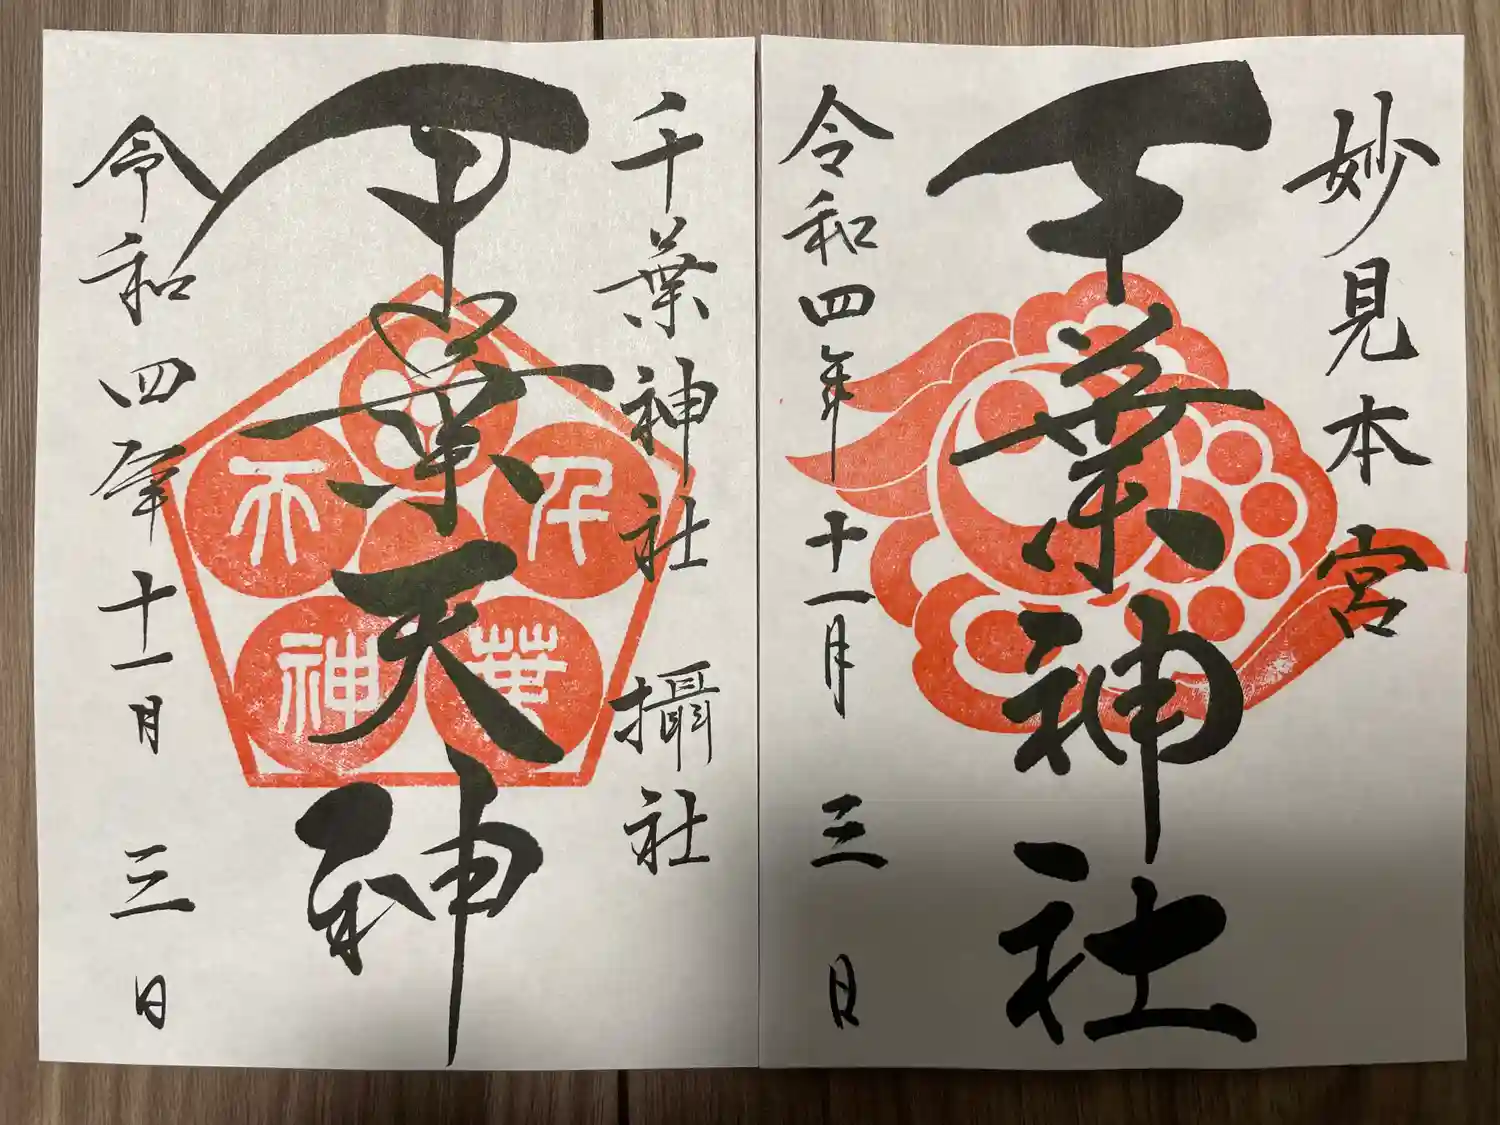 妙見本宮
千葉神社
令和四年十一月三日
千葉神社 攝社
千葉天神
令和四年十一月三日
千葉天神